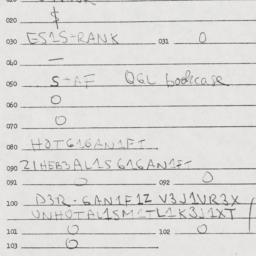 $
030 ES1S-RANK 031 0
040 —
050 S-AF OGL bodicase
060 0
070 0
080 HOT616AN1FT
090 21HEB3AL1S 616AN1FT
091 0 092 0
100 D3R-6AN1F1Z V3J1VR3X
UNHOTAL1SM1TL1K3J1XT
101 0 102 0
103 0